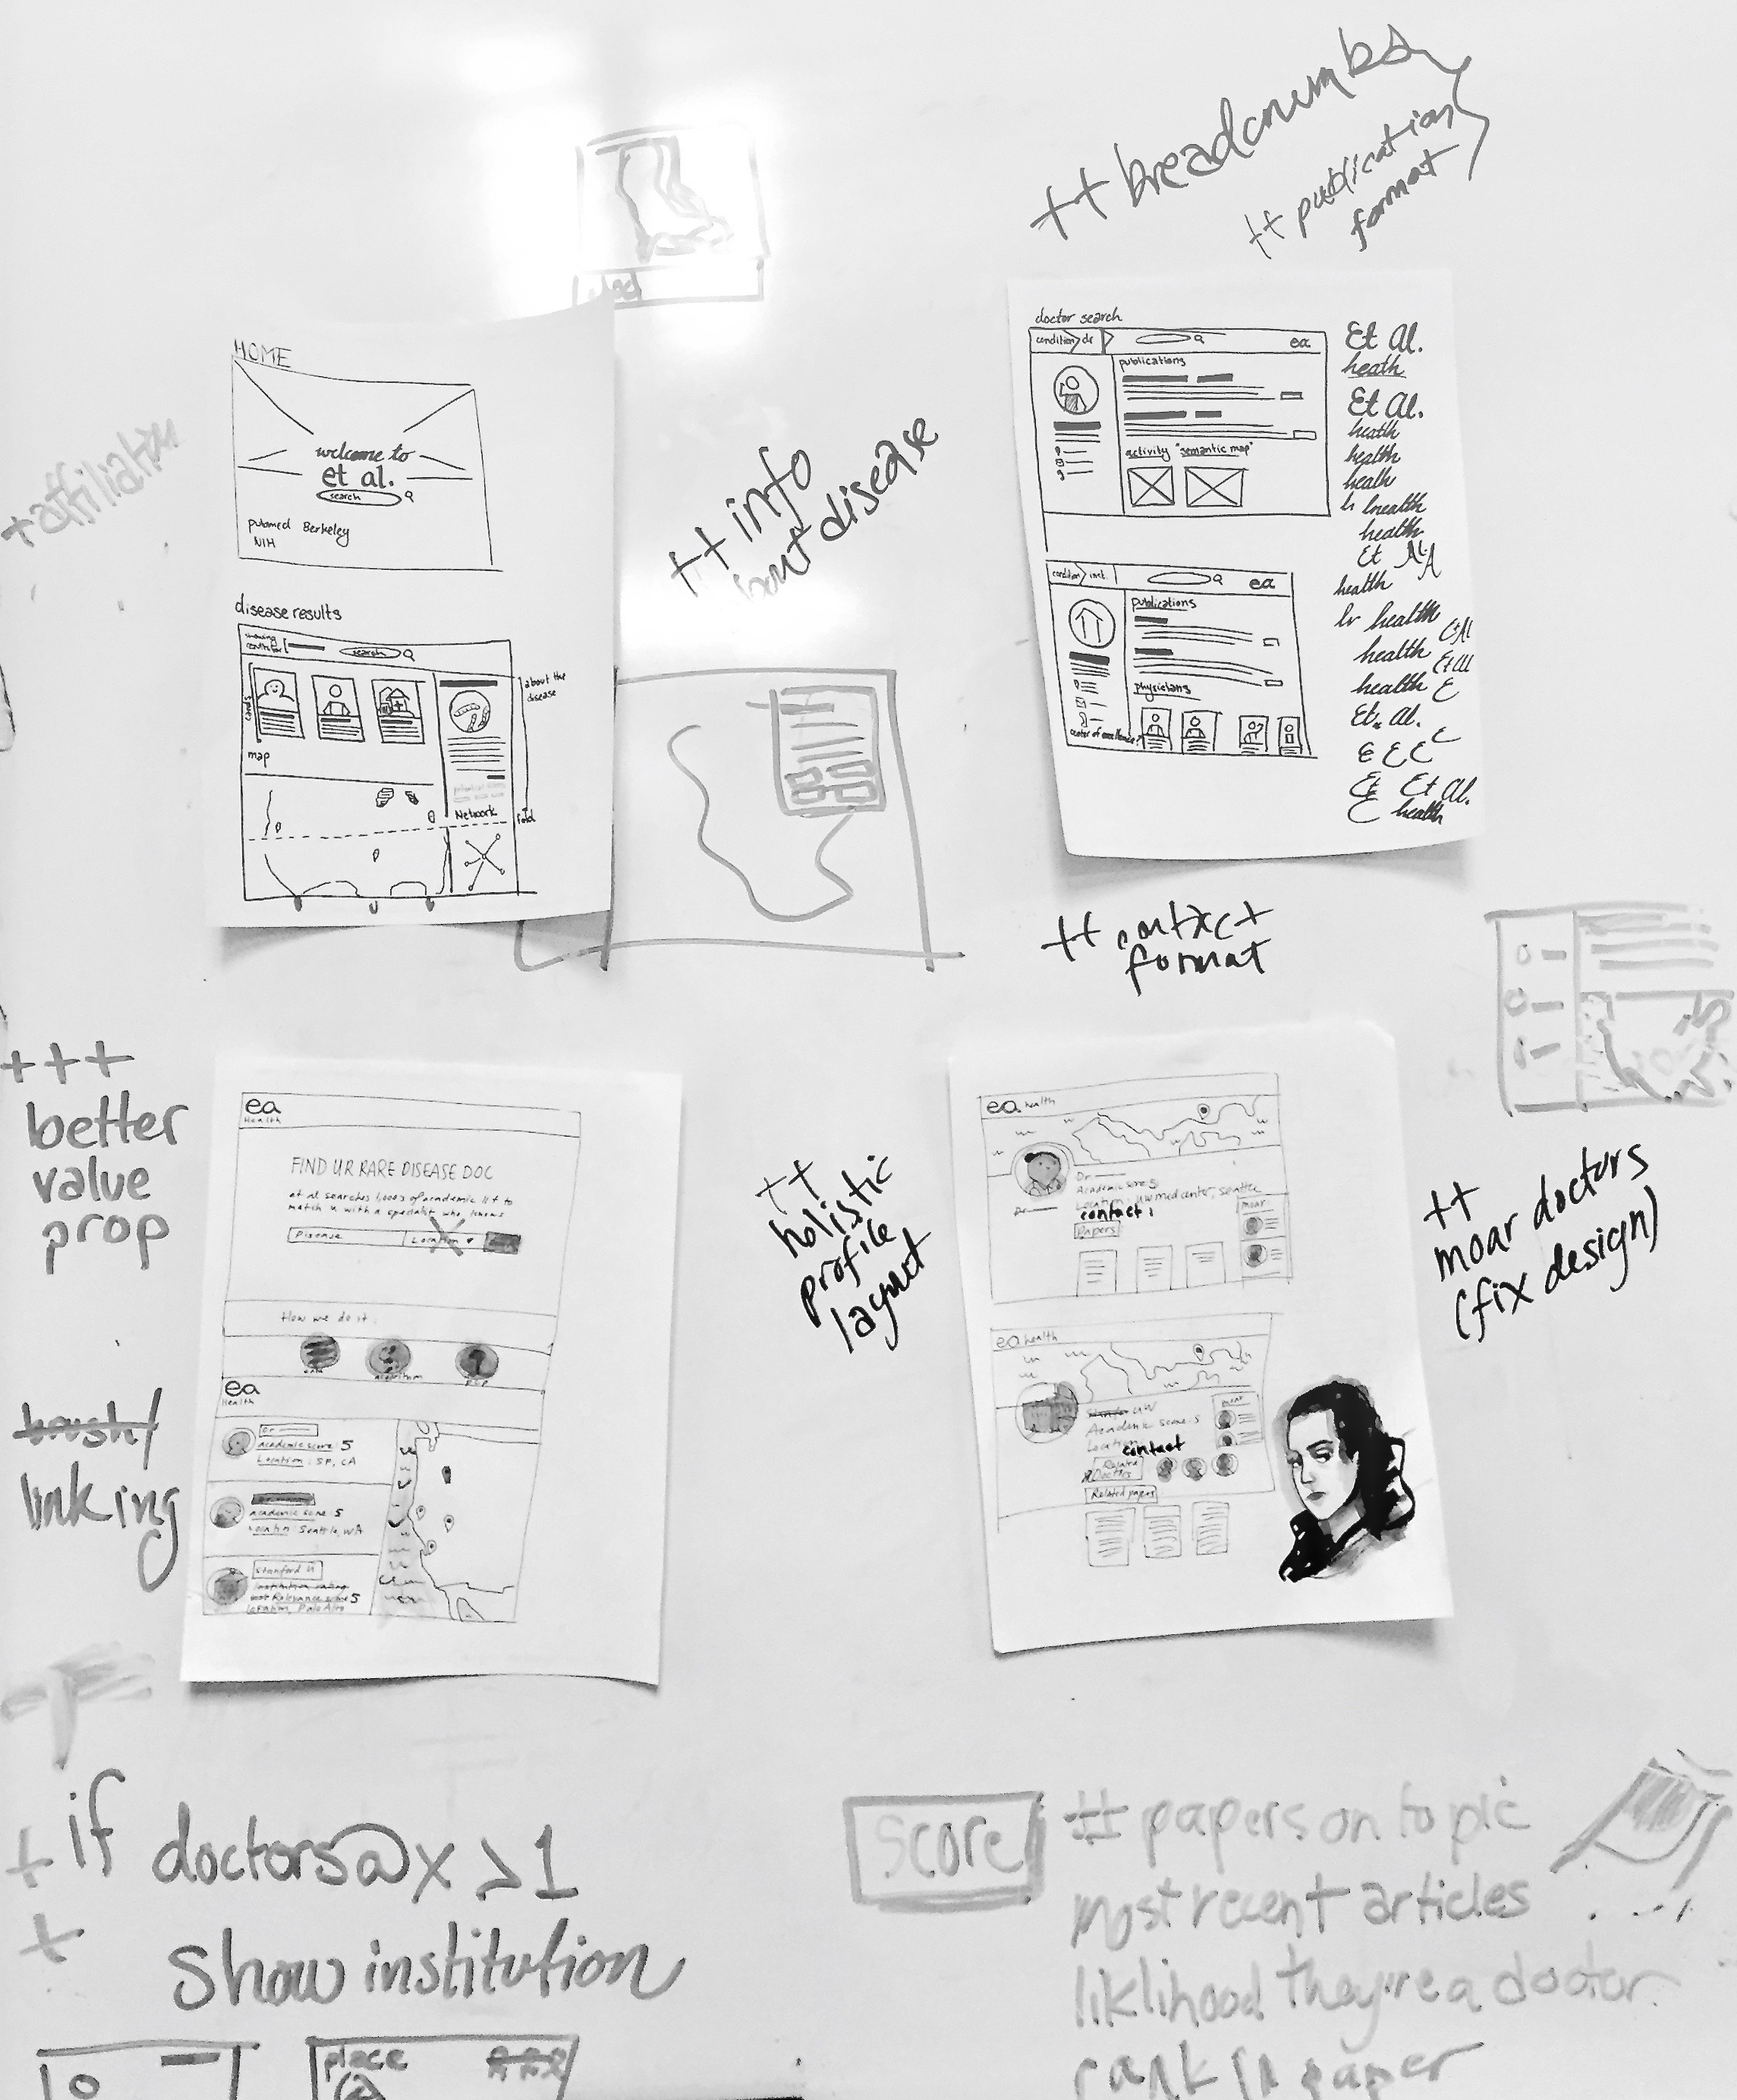 ++ breadcrumbs
++ publication
format
HOME
welcome to
et al.
search
pubmed Berkeley
NIH
disease results
showing
results for
search
cards
about the
disease
map
Network
fold
+affiliation
++ info
bout disease
doctor search
condition dr
ea
publications
activity "semantic map"
condition inst.
ea
publications
physicians
center of excellence?
Et Al.
heath
Et Al.
heatth
health
healh
h hnealth
health
Et Al A
health
hr health
Et Al
health
Et Al
health E
Et. Al.
E E E E
Et Et Al.
E health
++ contact
format
+++
better
value
prop
linking
ea
Health
FIND UR RARE DISEASE DOC
et al searches 1,000s of academic lit to
match u with a specialist who knows
Disease
Location
How we do it:
algorithm
ea
Health
Dr
academic score 5
Location: SF, CA
academic score 5
Location: Seattle, WA
Stanford U
institution rating
Relevance score 5
Location, Palo Alto
++
holistic
profile
layout
ea health
Dr
Academic score 5
Location: UW med center, Seattle
contact:
Papers
moar
ea health
Stanfor UW
Academic score 5
Location
contact
moar
Related
Doctors
Related papers
++
moar doctors
(fix design)
+ if doctors@x >1
+ show institution
score
# papers on topic
most recent articles
liklihood they're a doctor
rank in paper
place